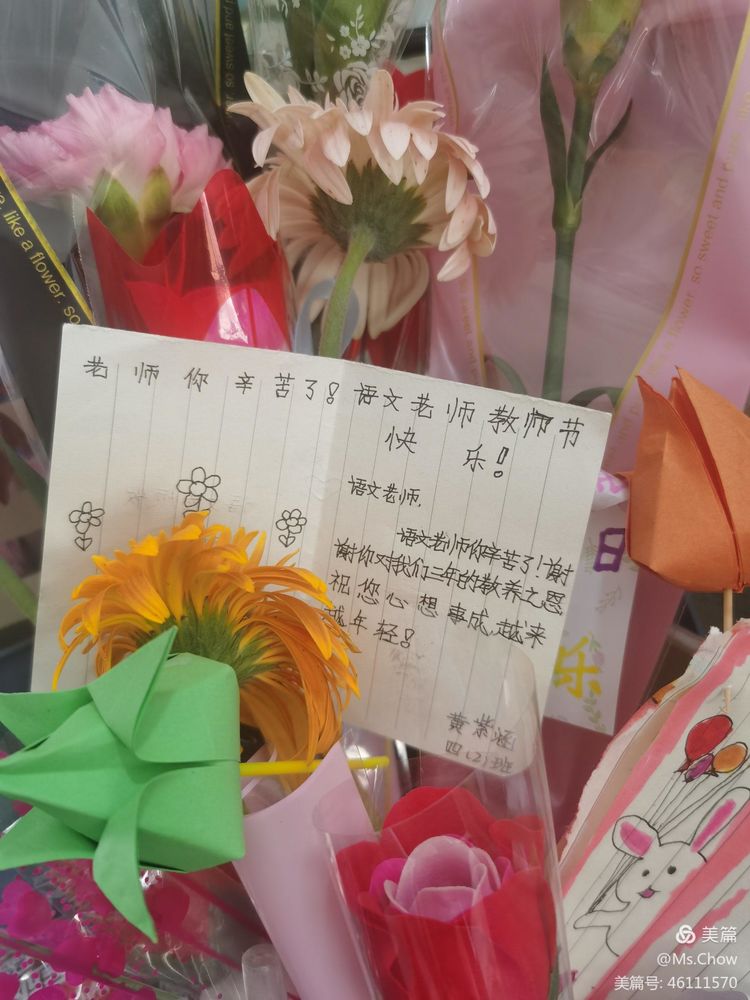 so sweet and r
e, like a flower. so
so sweet and r
a flower. so sweet and r
老师你辛苦了!语文老师教师节
快乐!
语文老师,
语文老师你辛苦了!谢
谢你对我们三年的教养之恩
祝您心想事成,越来
越年轻!
黄紫涵
四(2)班
日
乐
美篇
@Ms.Chow
美篇号: 46111570